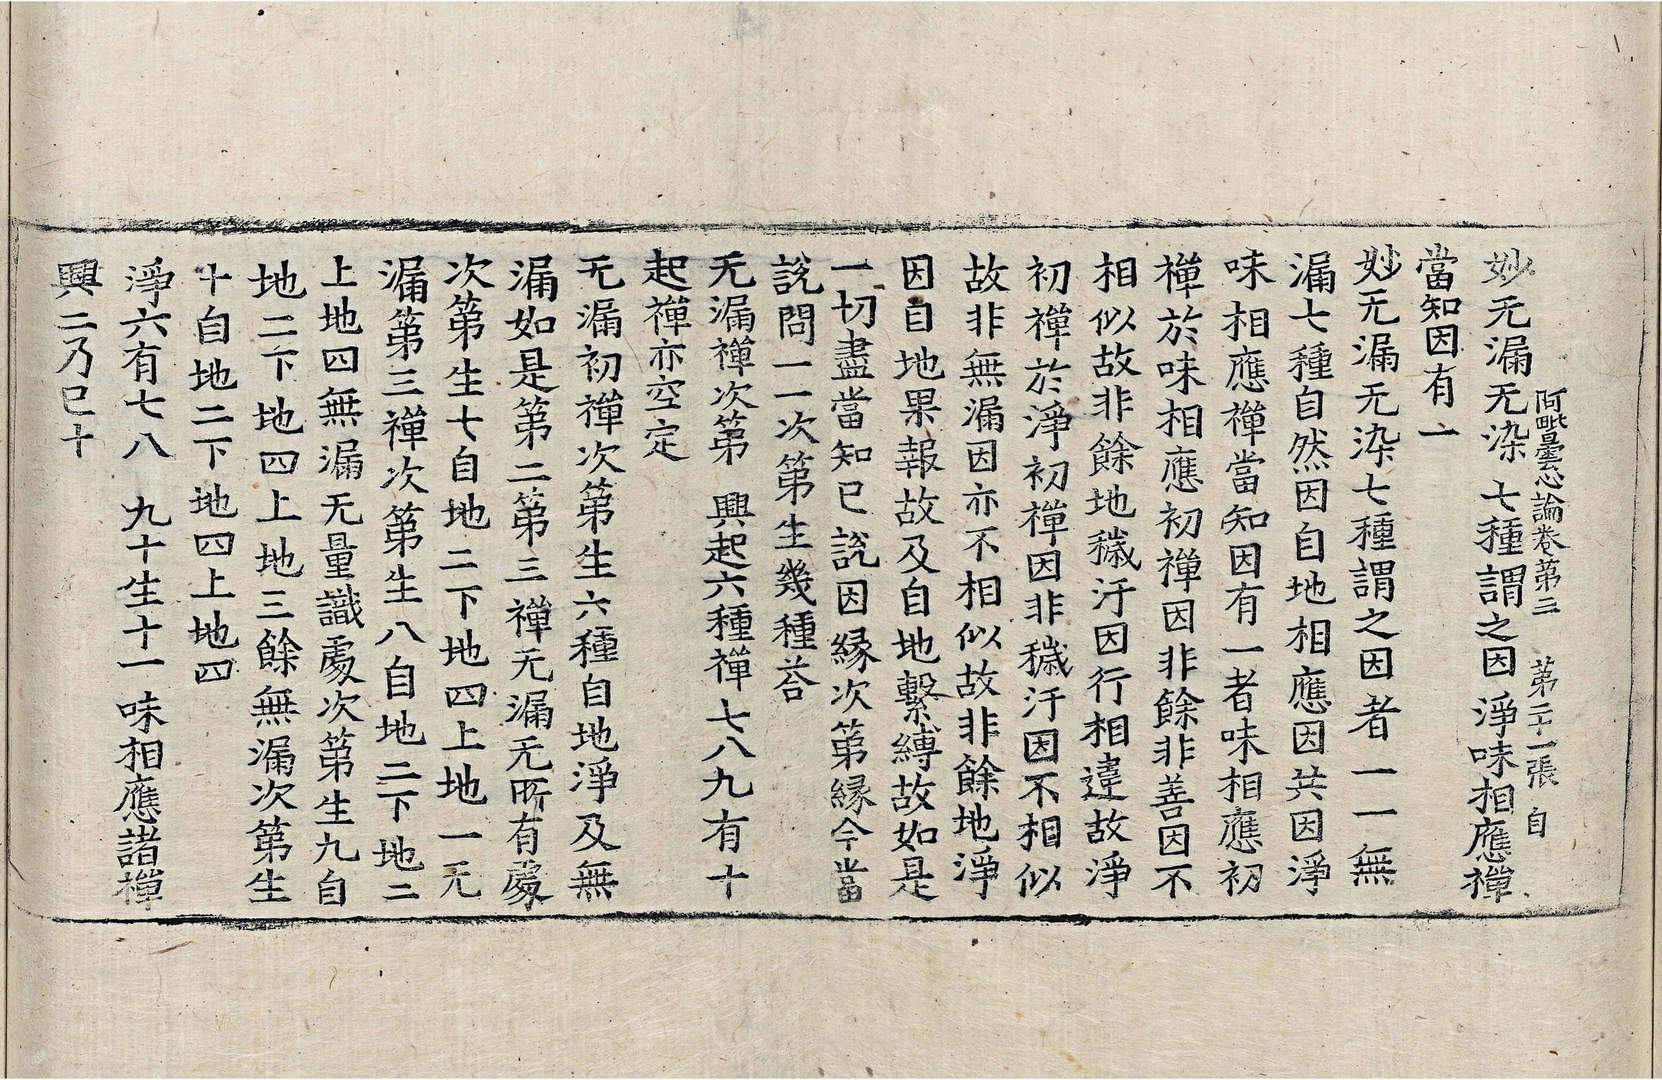 阿毗曇心論卷第三 第二十一張 自
妙无漏无染 七種謂之因 淨味相應禪
當知因有一
妙无漏无染七種謂之因者一一無
漏七種自然因自地相應因共因淨
味相應禪當知因有一者味相應初
禪於味相應初禪因非餘非善因不
相似故非餘地穢汙因行相違故淨
初禪於淨初禪因非穢汙因不相似
故非無漏因亦不相似故非餘地淨
因自地果報故及自地繫縛故如是
一切盡當知已說因緣次第緣今當
說問一一次第生幾種荅
无漏禪次第 興起六種禪 七八九有十
起禪亦空定
无漏初禪次第生六種自地淨及無
漏如是第二第三禪无漏无所有處
次第生七自地二下地四上地一无
漏第三禪次第生八自地二下地二
上地四無漏无量識處次第生九自
地二下地四上地三餘無漏次第生
十自地二下地四上地四
淨六有七八 九十生十一 味相應諸禪
興二乃已十